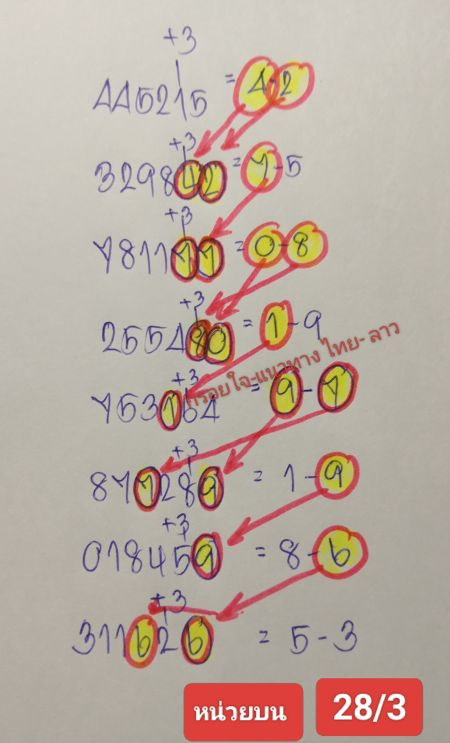 +3
445215 = 4-2
+3
329842 = 7-5
+3
781177 = 0-8
+3
255480 = 1-9
+3
753164 = 9-7
+3
877289 = 1-9
+3
018459 = 8-6
+3
311626 = 5-3
กรอยใจ-แนวทาง ไทย- ลาว
หน่วยบน 28/3